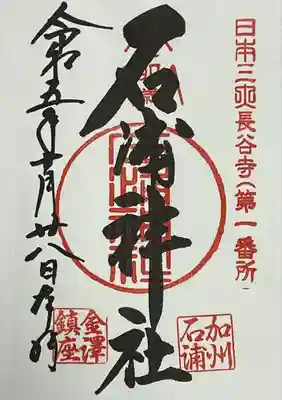 日本三大長谷寺(第一番所)
奉拝
石浦神社
令和五年十月廿八日
加州
石浦
金澤
鎮座